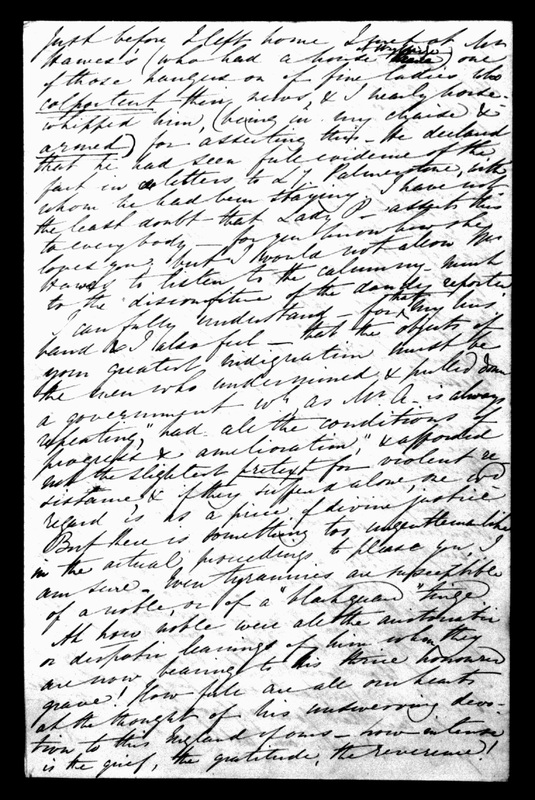 Just before I left home I met at Mr
Hawes's (who had a house there) one
of those hangers on of fine ladies who
colportent their news, & I nearly horse-
whipped him, (being in my chaise &
armed) for asserting this - He declared
that he had seen full evidence of the
fact in letters to Ly Palmerstone, with
whom he had been staying. I have not
the least doubt that Lady P - asserts this
to everybody - for you know how she
loves you, but I would not allow Mrs
Hawes to listen to the calumny - much
to the discomfiture of the dandy reporter
I can fully understand - for that my hus-
band & I also feel - that the objects of
your greatest indignation must be
the men who undermined & pulled down
a government wh. as Mr A. is always
repeating, "had all the conditions of
progress & amelioration," & afforded
not the slightest pretext for violent re-
sistance & if they suffered alone, we wd
regard is as a piece of divine justice
But there is something too ungentlemanlike
in the actual proceedings to please you, I
am sure. Even tyrannies are susceptible
of a noble, or of a "blackguard" tinge
Ah how noble were all the aristocratic
or despotic leanings of him whom they
are now bearing to his thrice honoured
grave! How full are all our hearts
at the thought of his unswerving devo-
tion to this England of ours - how intense
is the grief, the gratitude, the reverence!